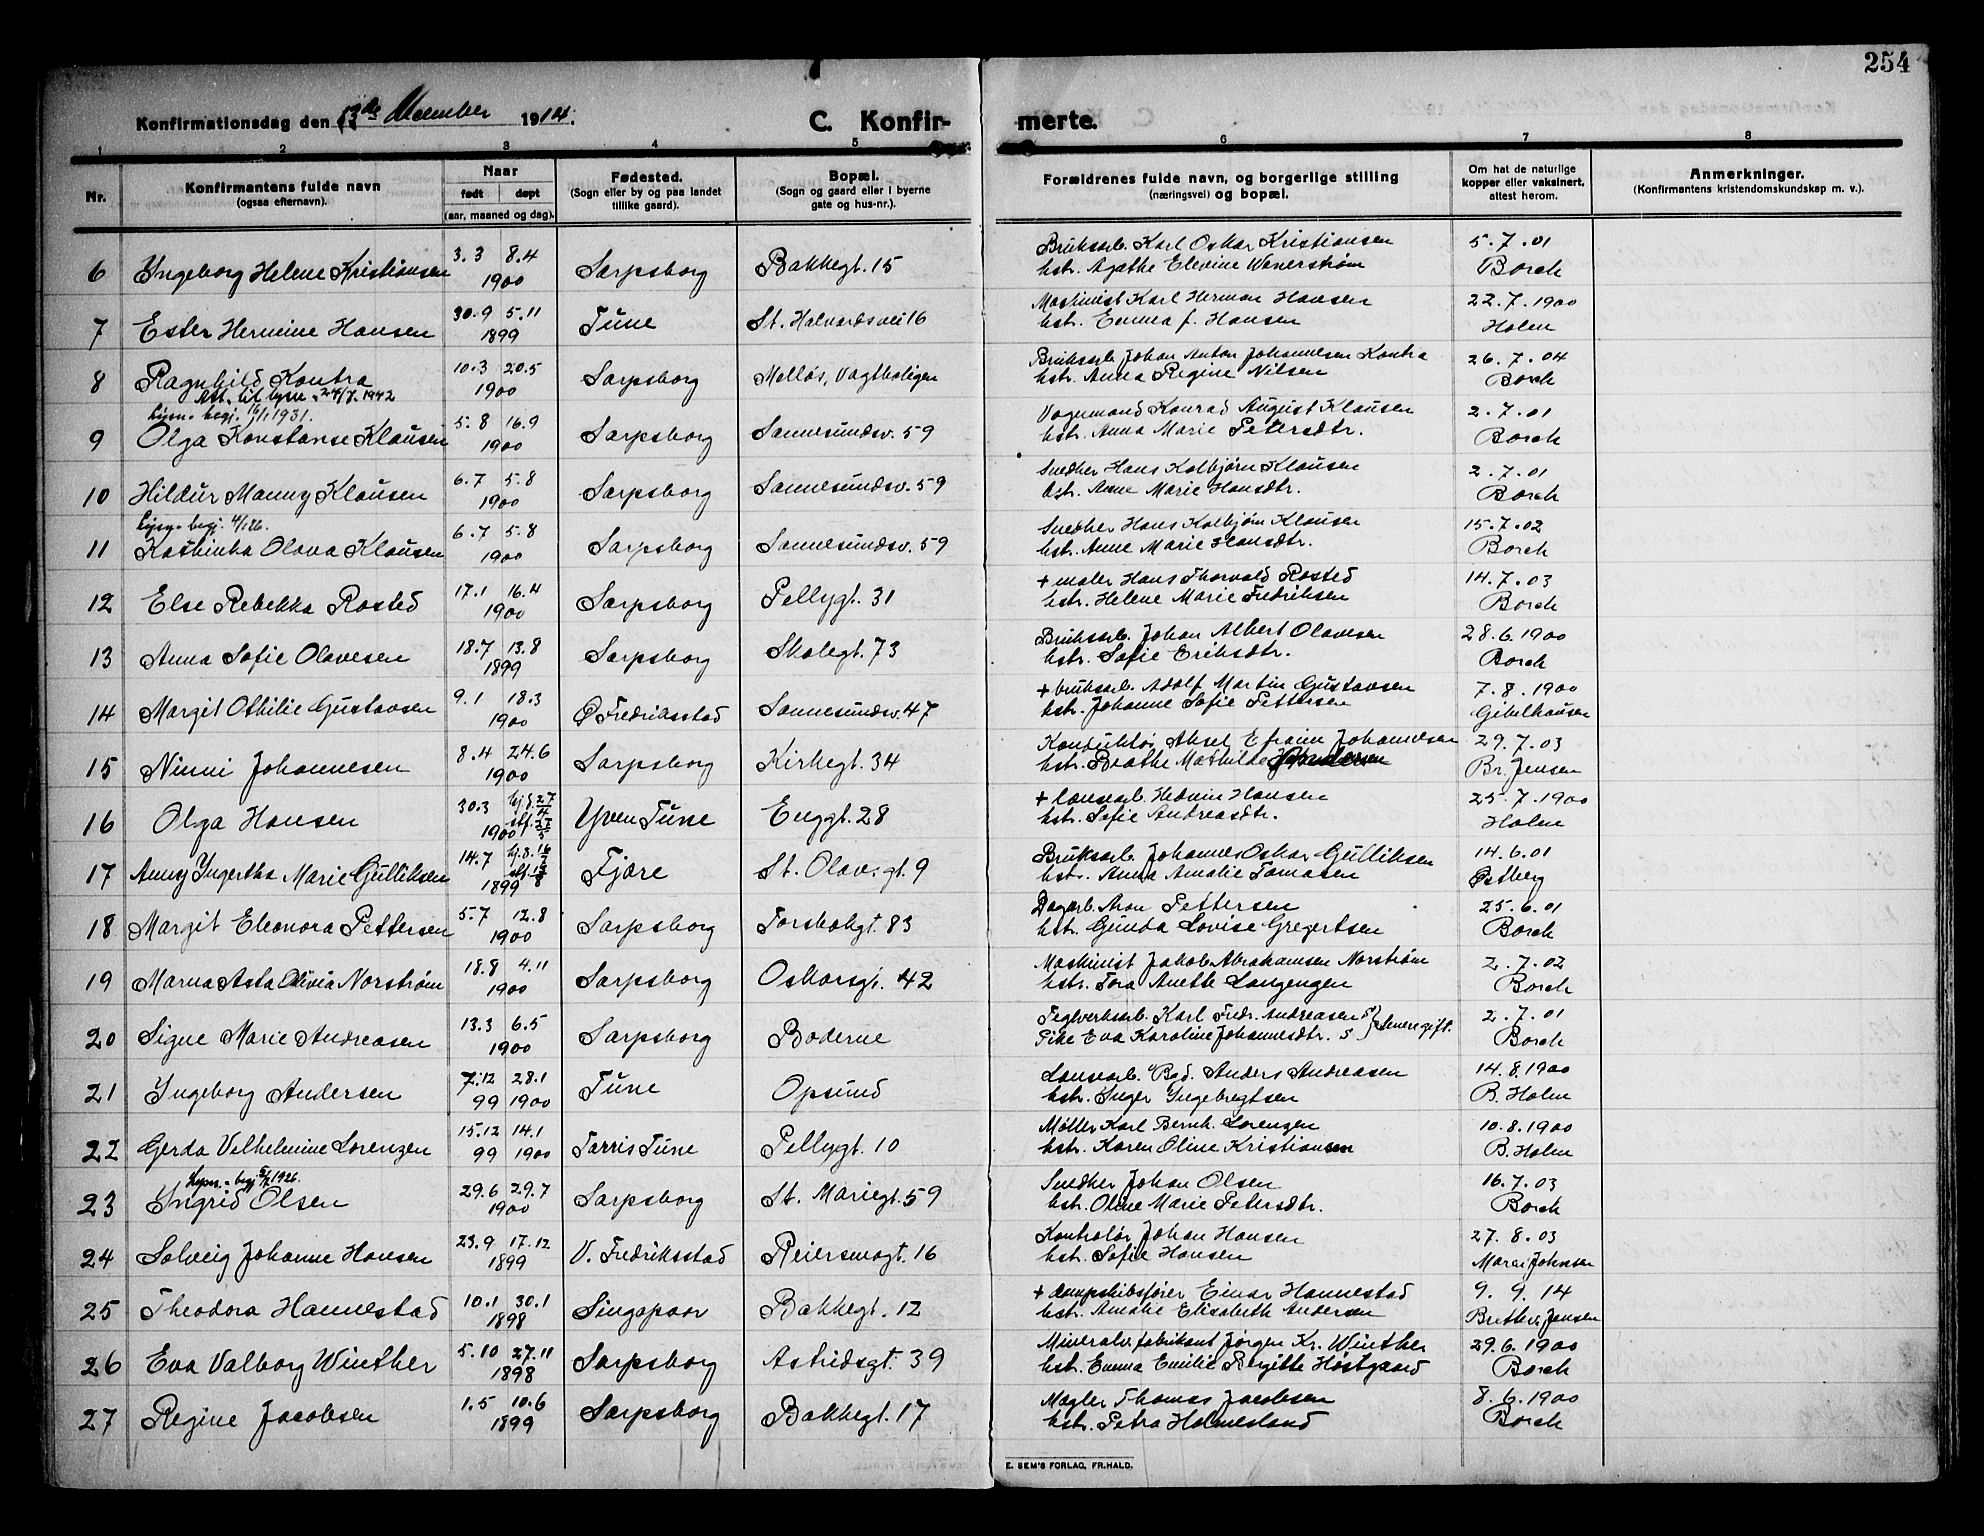 254
Konfirmationsdag den 13de December 1914.
C. Konfirmerte.
1 2 3 4 5 6 7 8
Nr.
Konfirmantens fulde navn
(ogsaa efternavn).
Naar
født døpt
(aar, maaned og dag).
Fødested.
(Sogn eller by og paa landet
tillike gaard).
Bopæl.
(Sogn og gaard eller i byerne
gate og hus-nr.).
Forældrenes fulde navn, og borgerlige stilling
(næringsvei) og bopæl.
Om hat de naturlige
kopper eller vaksinert,
attest herom.
Anmerkninger.
(Konfirmantens kristendomskundskap m. v.).
3.3 8.4 Bruksarb. Karl Oskar Kristiansen 5.7.01
6 Yngeborg Helene Kristiansen 1900 Sarpsborg Bakkegt. 15 hstr. Agathe Elevine Wenerstrøm Borch
30.9 5.11 Maskinist Karl Herman Hansen 22.7.1900
7 Ester Hermine Hansen 1899 Tune St. Halvardsvei 16 hstr. Emma f. Hansen Holm
10.3 20.5 Bruksarb. Johan Anton Johannesen Kontra 26.7.04
8 Ragnhild Kontra 1900 Sarpsborg Melløs, Vagtboligen hstr. Anna Regine Nilsen Borch
Att. til lysn. 24/7.1942
Lysn. begj. 16/1 1931.
5.8 16.9 Vognmand Konrad August Klausen 2.7.01
9 Olga Konstanse Klausen 1900 Sarpsborg Sannesundsv. 59 hstr. Anna Marie Petersdtr. Borch
6.7 5.8 Snedker Hans Kolbjørn Klausen 2.7.01
10 Hildur Manny Klausen 1900 Sarpsborg Sannesundsv. 59 hstr. Anne Marie Hansdtr. Borch
Lysn. begj. 4/1 26.
6.7 5.8 Snedker Hans Kolbjørn Klausen 15.7.02
11 Kathinka Olava Klausen 1900 Sarpsborg Sannesundsv. 59 hstr. Anne Marie Hansdtr. Borch
17.1 16.4 + maler Hans Thorvald Rosted 14.7.03
12 Else Rebekka Rosted 1900 Sarpsborg Pellygt. 31 hstr. Helene Marie Fredriksen Borch
18.7 13.8 Bruksarb. Johan Albert Olavesen 28.6.1900
13 Anna Sofie Olavesen 1899 Sarpsborg Skolegt. 73 hstr. Sofie Eriksdtr. Borch
9.1 18.3 + bruksarb. Adolf Martin Gustavsen 7.8.1900
14 Margit Othilie Gustavsen 1900 Ø Fredriksstad Sannesundsv. 47 hstr. Johanne Sofie Pettersen Gibelhausen
8.4 24.6 Konduktør Aksel Efraim Johannesen 29.7.03
15 Ninni Johannesen 1900 Sarpsborg Kirkegt. 34 hstr. Beathe Mathilde Br. Jensen
30.3 hj.d. 27/4 + lænsearb. Hedvin Hansen 25.7.1900
16 Olga Hansen 1900 stf. 27/5 Yven Tune Enggt. 28 hstr. Sofie Andreasdtr. Holm
14.7 hj.d. 16/7 Bruksarb. Johannes Oskar Gulliksen 14.6.01
17 Anny Yngertha Marie Gulliksen 1899 Fjære St. Olavsgt. 9 hstr. Anna Amalie Tomasen Østberg
5.7 12.8 Dagarb. Aron Pettersen 25.6.01
18 Margit Eleonora Pettersen 1900 Sarpsborg Torsbekgt. 83 hstr. Gunda Lovise Gregertsen Borch
18.8 4.11 Maskinist Jakob Abrahamsen Norstrøm 2.7.02
19 Marna Asta Olivia Norstrøm 1900 Sarpsborg Oskarsgt. 42 hstr. Tora Anette Langengen Borch
13.3 6.5 Teglverksarb. Karl Fredr. Andreasen 2.7.01
20 Signe Marie Andreasen 1900 Sarpsborg Boderne Pike Eva Karoline Johannesdtr. senere gift. Borch
7.12 28.1 Lænsearb. Anders Andreasen 14.8.1900
21 Yngeborg Andersen 99 1900 Tune Opsund hstr. Inger Yngebregtsen B. Holm
15.12 14.1 Møller Karl Bernh. Lorenzen 10.8.1900
22 Gerda Vilhelmine Lorenzen 99 1900 Tarris Tune Pellygt. 10 hstr. Karen Oline Kristiansen B. Holm
Lysn. begj. 5/2 1926.
29.6 29.7 Snedker Johan Olsen 16.7.03
23 Ingrid Olsen 1900 Sarpsborg St. Mariegt. 59 hstr. Oline Marie Petersdtr. Borch
23.9 17.12 Kontrolør Johan Hansen 27.8.03
24 Solveig Johanne Hansen 1899 V. Fredriksstad Reiersmogt. 16 hstr. Sofie Hansen Maren Johnsen
10.1 30.1 + dampskibsfører Einar Hannestad 9.9.14
25 Theodora Hannestad 1898 Singapoor Bakkegt. 12 hstr. Amalie Elisabeth Andersen Jensen
5.10 27.11 Mineralv. fabrikant Jørgen Kr. Winther 29.6.1900
26 Eva Valborg Winther 1898 Sarpsborg Astridsgt. 39 hstr. Emma Emilie Bergitte Høstgaard Borch
1.5 10.6 Mægler Thomas Jacobsen 8.6.1900
27 Regine Jacobsen 1899 Sarpsborg Bakkegt. 17 hstr. Petra Holmesland Borch
E. SEM'S FORLAG, FR.HALD.